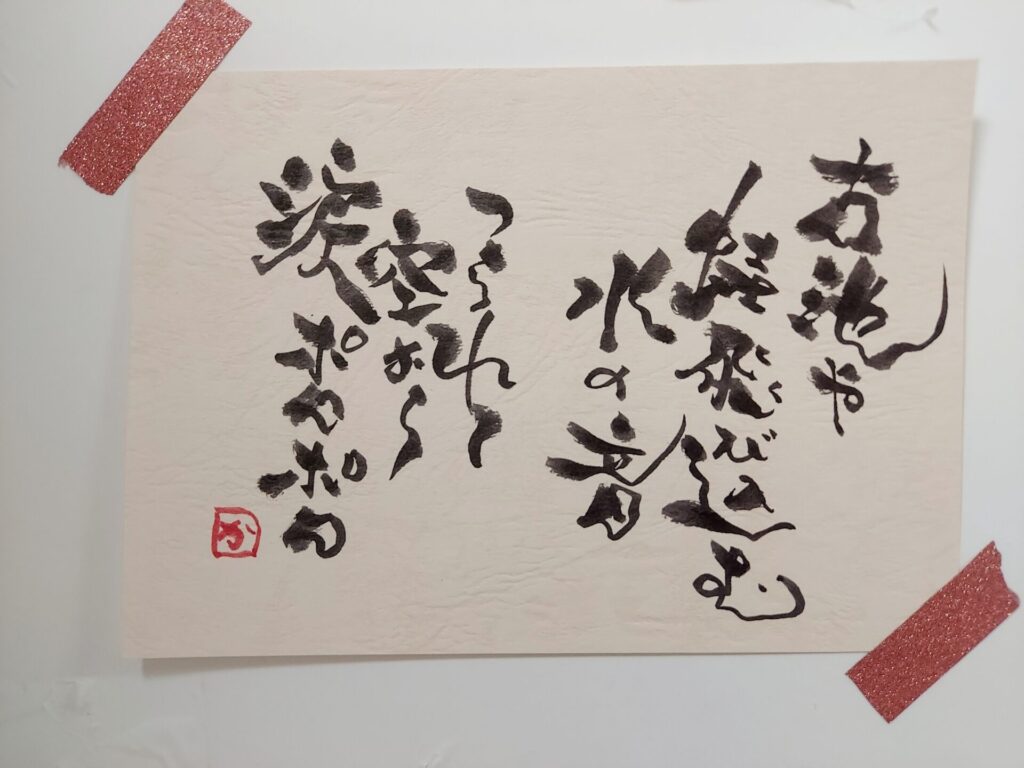 古池や
蛙飛び込む
水の音
つられて
空から
涙ポロポロ
か